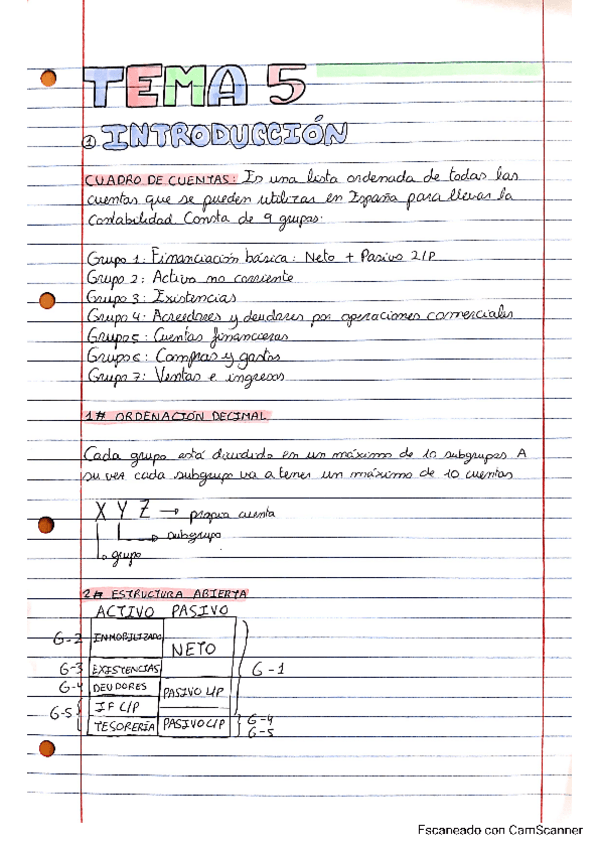 TEMA 5
① INTRODUCCIÓN
CUADRO DE CUENTAS: Es una lista ordenada de todas las
cuentas que se pueden utilizar en España para llevar la
contabilidad Consta de 9 grupos:
Grupo 1: Financiación básica: Neto + Pasivo L/P
Grupo 2: Activo no corriente
Grupo 3: Existencias
Grupo 4: Acreedores y deudores por operaciones comerciales
Grupo 5: Cuentas financieras
Grupo 6: Compras y gastos
Grupo 7: Ventas e ingresos
1# ORDENACIÓN DECIMAL
Cada grupo está dividido en un máximo de 10 subgrupos A
su vez cada subgrupo va a tener un máximo de 10 cuentas
X Y Z → propia cuenta
subgrupo
grupo
2# ESTRUCTURA ABIERTA
ACTIVO PASIVO
G-2 INMOBILIZADO
NETO
G-3 EXISTENCIAS G-1
G-4 DEUDORES PASIVO L/P
G-5 IF C/P
TESORERIA PASIVO C/P G-4
G-5
Escaneado con CamScanner